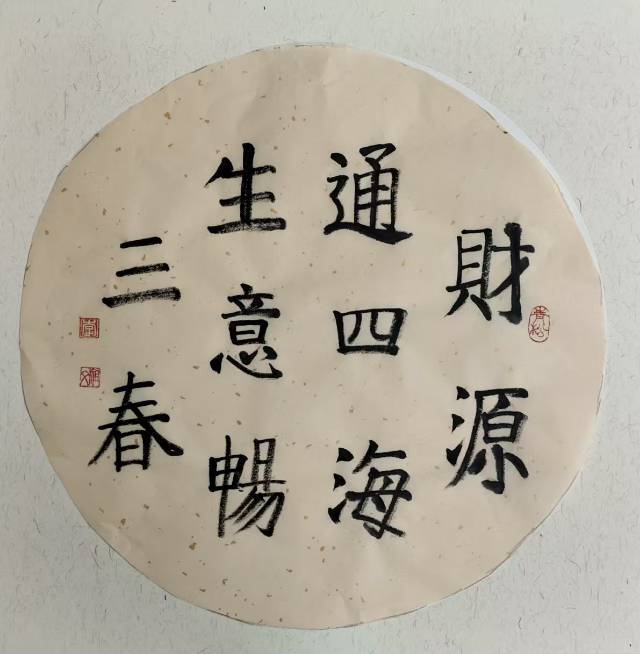 財源
通四海
生意暢
三春